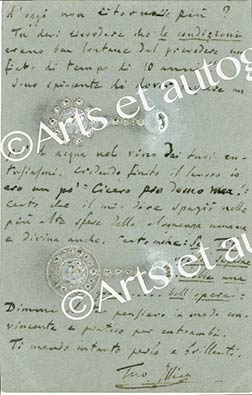 d'oggi non ritornate più?
Tu devi ricordare che le condizioni
erano ben lontane dal prevedere un
di tempo di 10 anni
Sono
©Arts et autog
acqua nel vino dei tuoi en-
tusiasmi. Credendo finito il lavoro io
ero un po' Cicero pro domo mea.
certo che il mio dire spaziò nelle
più alte sfere della eloquenza umana
e divina anche. certamente
©Arts et au
dell'opera.
Dimmi pensiero in modo con-
vincente e pratico per entrambi.
Ti mando intanto perle e brillanti.
Tuo Illica